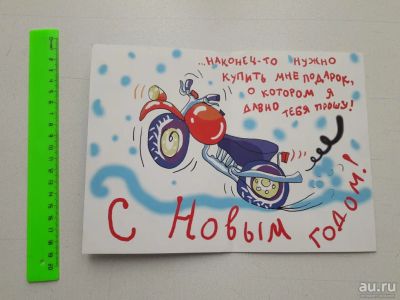 ...НАКОНЕЦ-ТО НУЖНО
КУПИТЬ МНЕ ПОДАРОК,
О КОТОРОМ Я
ДАВНО ТЕБЯ ПРОШУ!
С НОВЫМ ГОДОМ!
au.ru